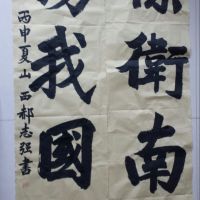 保衛南
我國
丙申夏山西郝志强書